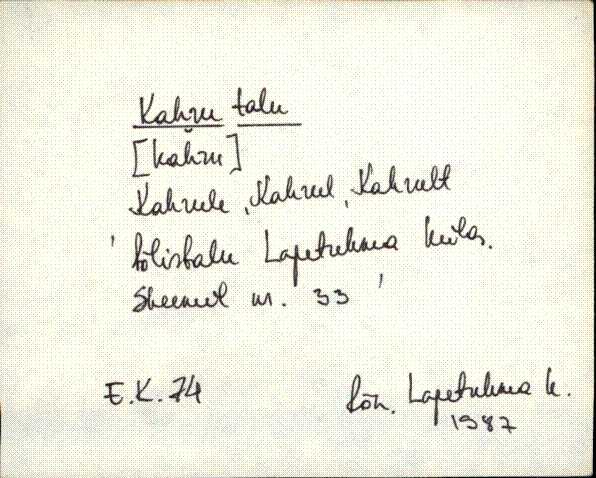 Kahru talu
[kahru]
Kahrule, Kahrul, Kahrult
'põlistalu Lapetukme külas.
Skeemil nr. 33'
E.K. 74
Rõu. Lapetukme k.
1987